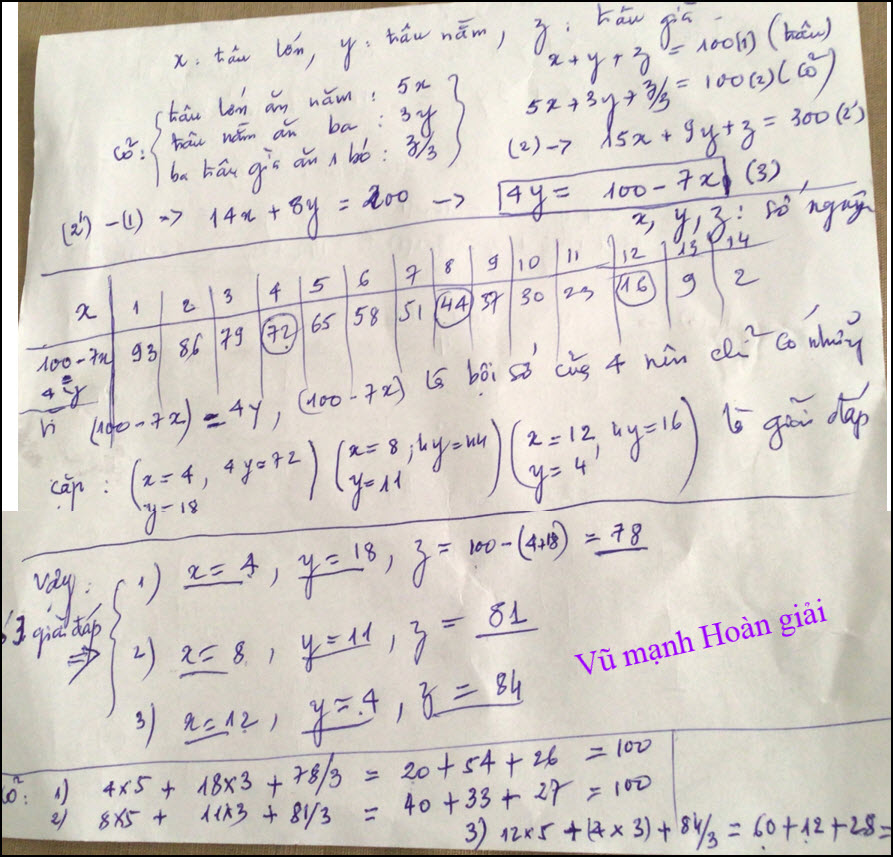 x : trâu lớn, y : trâu nằm, z : trâu già.
x + y + z = 100 (1) (trâu)
cỏ : { trâu lớn ăn năm : 5x
trâu nằm ăn ba : 3y
ba trâu già ăn 1 bó : z/3 }
5x + 3y + z/3 = 100 (2) (cỏ)
(2) -> 15x + 9y + z = 300 (2')
(2') - (1) => 14x + 8y = 200 -> 4y = 100 - 7x (3)
x, y, z : số nguyên
x | 1 | 2 | 3 | 4 | 5 | 6 | 7 | 8 | 9 | 10 | 11 | 12 | 13 | 14
100-7x = 4y | 93 | 86 | 79 | 72 | 65 | 58 | 51 | 44 | 37 | 30 | 23 | 16 | 9 | 2
Vì (100-7x) = 4y, (100-7x) là bội số của 4 nên chỉ có những
cặp : (x=4, 4y=72 y=18) (x=8; 4y=44 y=11) (x=12, 4y=16 y=4) là giải đáp
Vậy : 1) x = 4, y = 18, z = 100-(4+18) = 78
có 3 giải đáp => 2) x = 8, y = 11, z = 81
3) x = 12, y = 4, z = 84
Vũ mạnh Hoàn giải
Cỏ : 1) 4x5 + 18x3 + 78/3 = 20 + 54 + 26 = 100
2) 8x5 + 11x3 + 81/3 = 40 + 33 + 27 = 100
3) 12x5 + (4x3) + 84/3 = 60 + 12 + 28 =